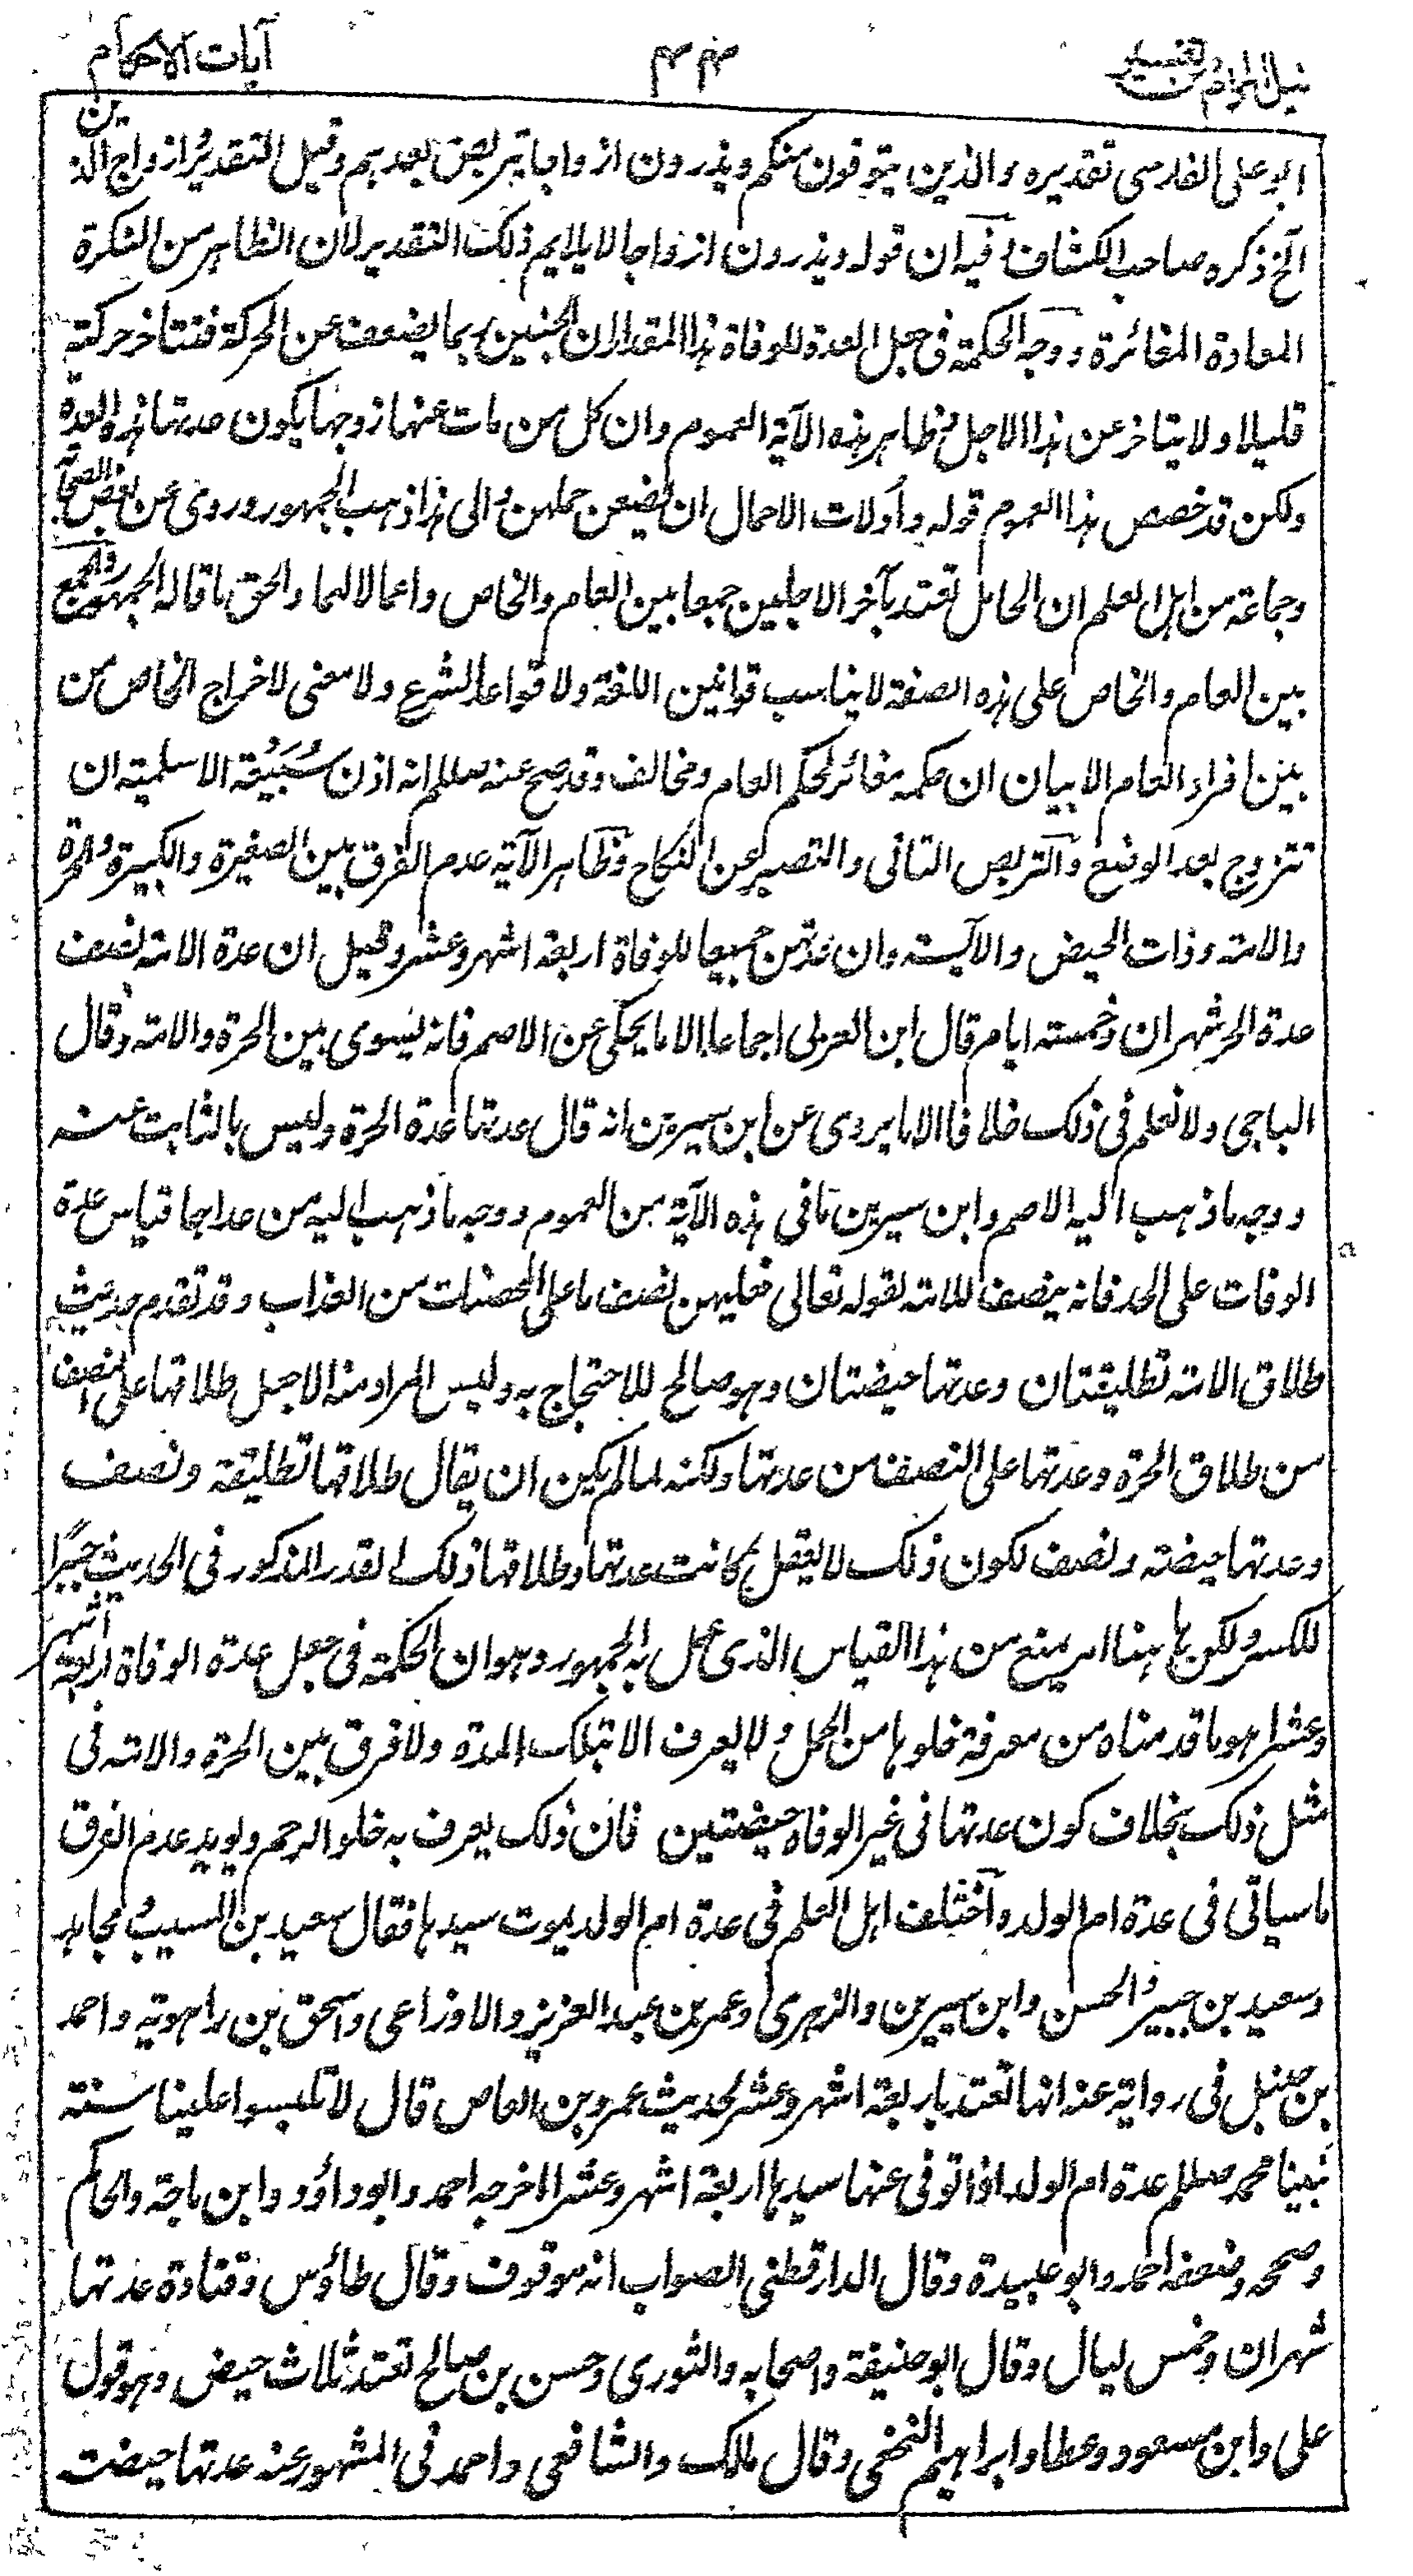 نيل المرام من تفسير
۴۴
آيات الاحكام
ابو على الفارسى تقديره والذين يتوفون منكم ويذرون ازواجا يتربصن بعدهم وقيل التقدير وازواج الذين
الخ ذكره صاحب الكشاف وفيه ان قوله ويذرون ازواجا لا يلايم ذلك التقدير لان الظاهر من النكرة
المعادة المغائرة ووجه الحكمة فى جعل العدة للوفاة هذا المقدار ان الجنين ربما يضعف عن الحركة فتتاخر حركته
قليلا ولا يتاخر عن هذا الاجل وظاهر هذه الآية العموم وان كل من مات عنها زوجها يكون عدتها هذه العدة
ولكن قد خصص هذا العموم قوله وأولات الاحمال ان يضعن حملهن والى هذا ذهب الجمهور وروى عن بعض الصحابة
وجماعة من اهل العلم ان الحامل تعتد بآخر الاجلين جمعا بين العام والخاص واعمالا لهما والحق ما قاله الجمهور والجمع
بين العام والخاص على هذه الصفة لا يناسب قوانين اللغة ولا قواعد الشرع ولا معنى لاخراج الخاص من
بين افراد العام الا بيان ان حكمه مغائر لحكم العام ومخالف وقد صح عنه صللم انه اذن سُبَيْعَة الاسلمية ان
تتزوج بعد الوضع والتربص التانى والتصبر عن النكاح وظاهر الآية عدم الفرق بين الصغيرة والكبيرة والحرة
والامة وذات الحيض والآيسة وان عدتهن جميعا للوفاة اربعة اشهر وعشر وقيل ان عدة الامة نصف
عدة الحر شهران وخمسة ايام قال ابن العربى اجماعا الا ما يحكى عن الاصم فانه يسوى بين الحرة والامة وقال
الباجى ولا نعلم فى ذلك خلافا الا ما يروى عن ابن سيرين انه قال عدتها عدة الحرة وليس بالثابت عنه
ووجه ما ذهب اليه الاصم وابن سيرين ما فى هذه الآية من العموم ووجه ما ذهب اليه من عداهما قياس عدة
الوفات على الحد فانه ينصف للامة لقوله تعالى فعليهن نصف ما على المحصنات من العذاب وقد تقدم حديث
طلاق الامة تطليقتان وعدتها حيضتان وهو صالح للاحتجاج به وليس المراد منه الا جعل طلاقها على النصف
من طلاق الحرة وعدتها على النصف من عدتها ولكنه لما لم يكن ان يقال طلاقها تطليقة ونصف
وعدتها حيضة ونصف لكون ذلك لا يعقل كانت عدتها وطلاقها ذلك القدر المذكور فى الحديث جبرًا
للكسر ولكن ها هنا امر يمنع من هذا القياس الذى عمل به الجمهور وهو ان الحكمة فى جعل عدة الوفاة اربعة اشهر
وعشرا هو ما قدمناه من معرفة خلوها من الحمل ولا يعرف الا بتلك المدة ولا فرق بين الحرة والامة فى
مثل ذلك بخلاف كون عدتها فى غير الوفاه حيضتين فان ذلك يعرف به خلو الرحم ويويد عدم الفرق
ما سياتى فى عدة ام الولد واختلف اهل العلم فى عدة ام الولد يموت سيدها فقال سعيد بن المسيب ومجاهد
وسعيد بن جبير والحسن وابن سيرين والزهرى وعمر بن عبد العزيز والاوزاعى واسحق بن راهويه واحمد
بن حنبل فى رواية عنه انها تعتد باربعة اشهر وعشر لحديث عمرو بن العاص قال لا تلبسوا علينا سنة
نبينا محمد صللم عدة ام الولد اذا توفى عنها سيدها اربعة اشهر وعشرا اخرجه احمد وابو داؤد وابن ماجة والحاكم
وصححه وضعفه احمد وابو عبيدة وقال الدارقطنى الصواب انه موقوف وقال طاؤس وقتادة عدتها
شهران وخمس ليال وقال ابو حنيفة واصحابه والثورى وحسن بن صالح تعتد ثلاث حيض وهو قول
على وابن مسعود وعطا وابراهيم النخعى وقال مالك والشافعى واحمد فى المشهور عنه عدتها حيضة